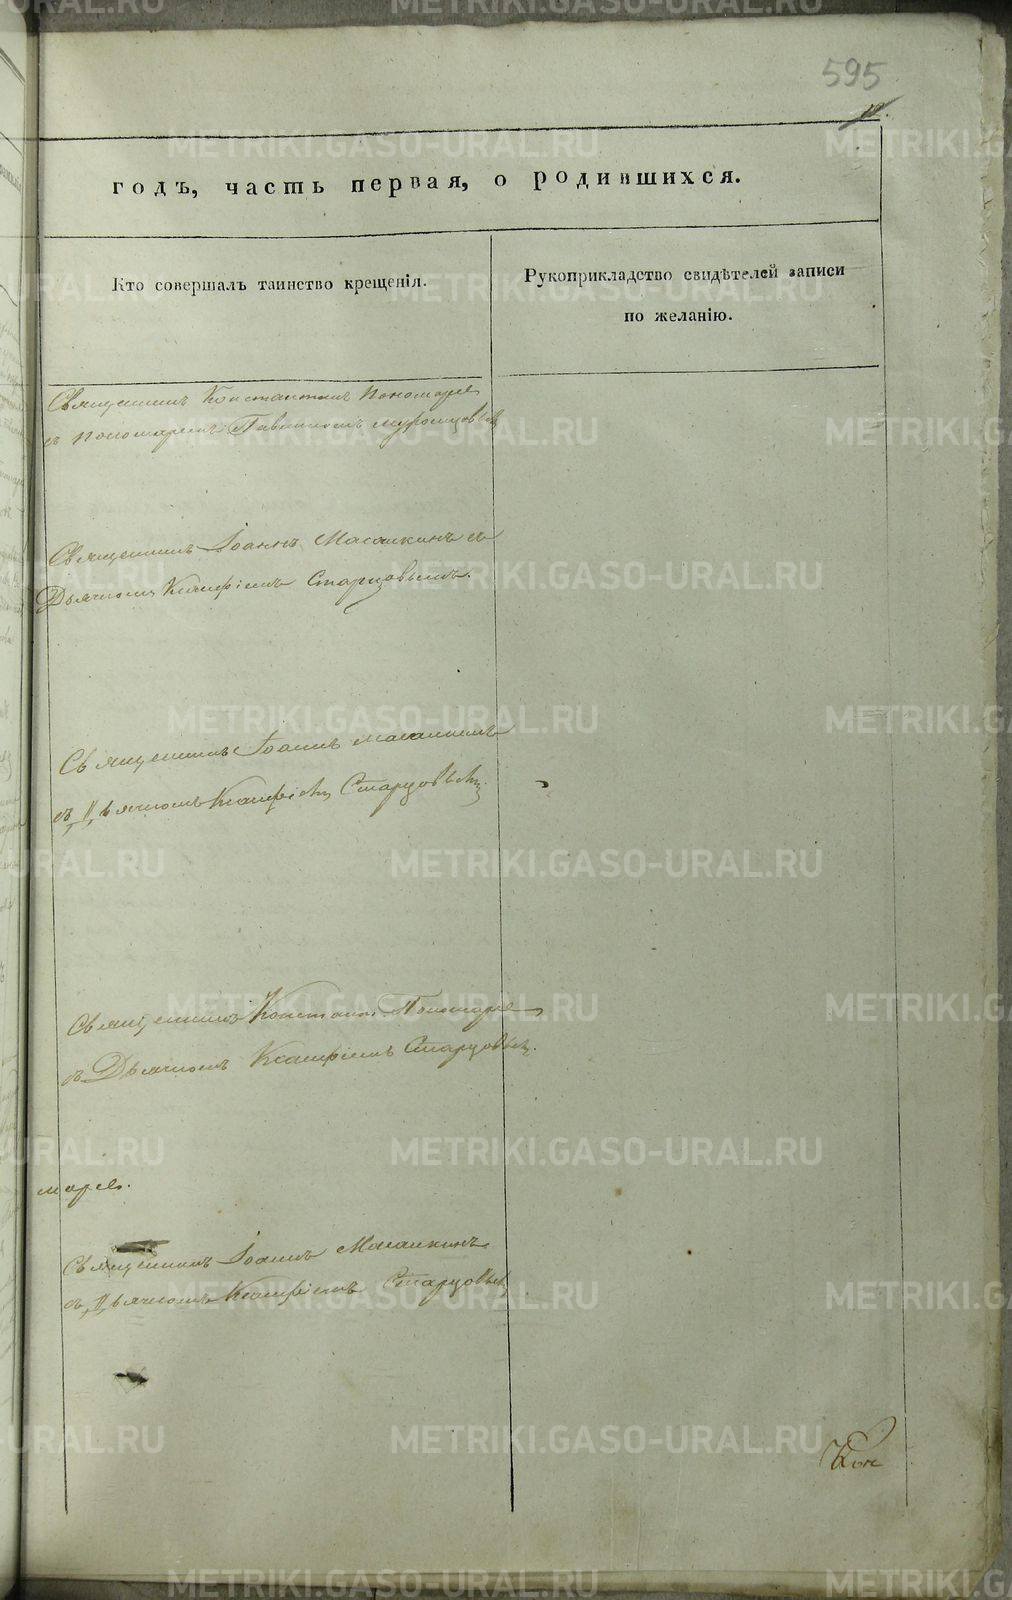 595
12.
годъ, часть первая, о родившихся.
Кто совершалъ таинство крещенія.
Рукоприкладство свидѣтелей записи
по желанію.
Священникъ Константинъ Пономаре
съ пономаремъ
Священникъ Іоаннъ Масалкинъ съ
Дьячкомъ Старцовымъ.
Священникъ Іоаннъ Масалкинъ
съ Дьячкомъ Старцовымъ
Священникъ Констант. Пономаре
съ Дьячкомъ Старцовымъ.
маре.
Священникъ Іоаннъ Масалкинъ
съ Дьячкомъ Старцовымъ
METRIKI.GASO-URAL.RU